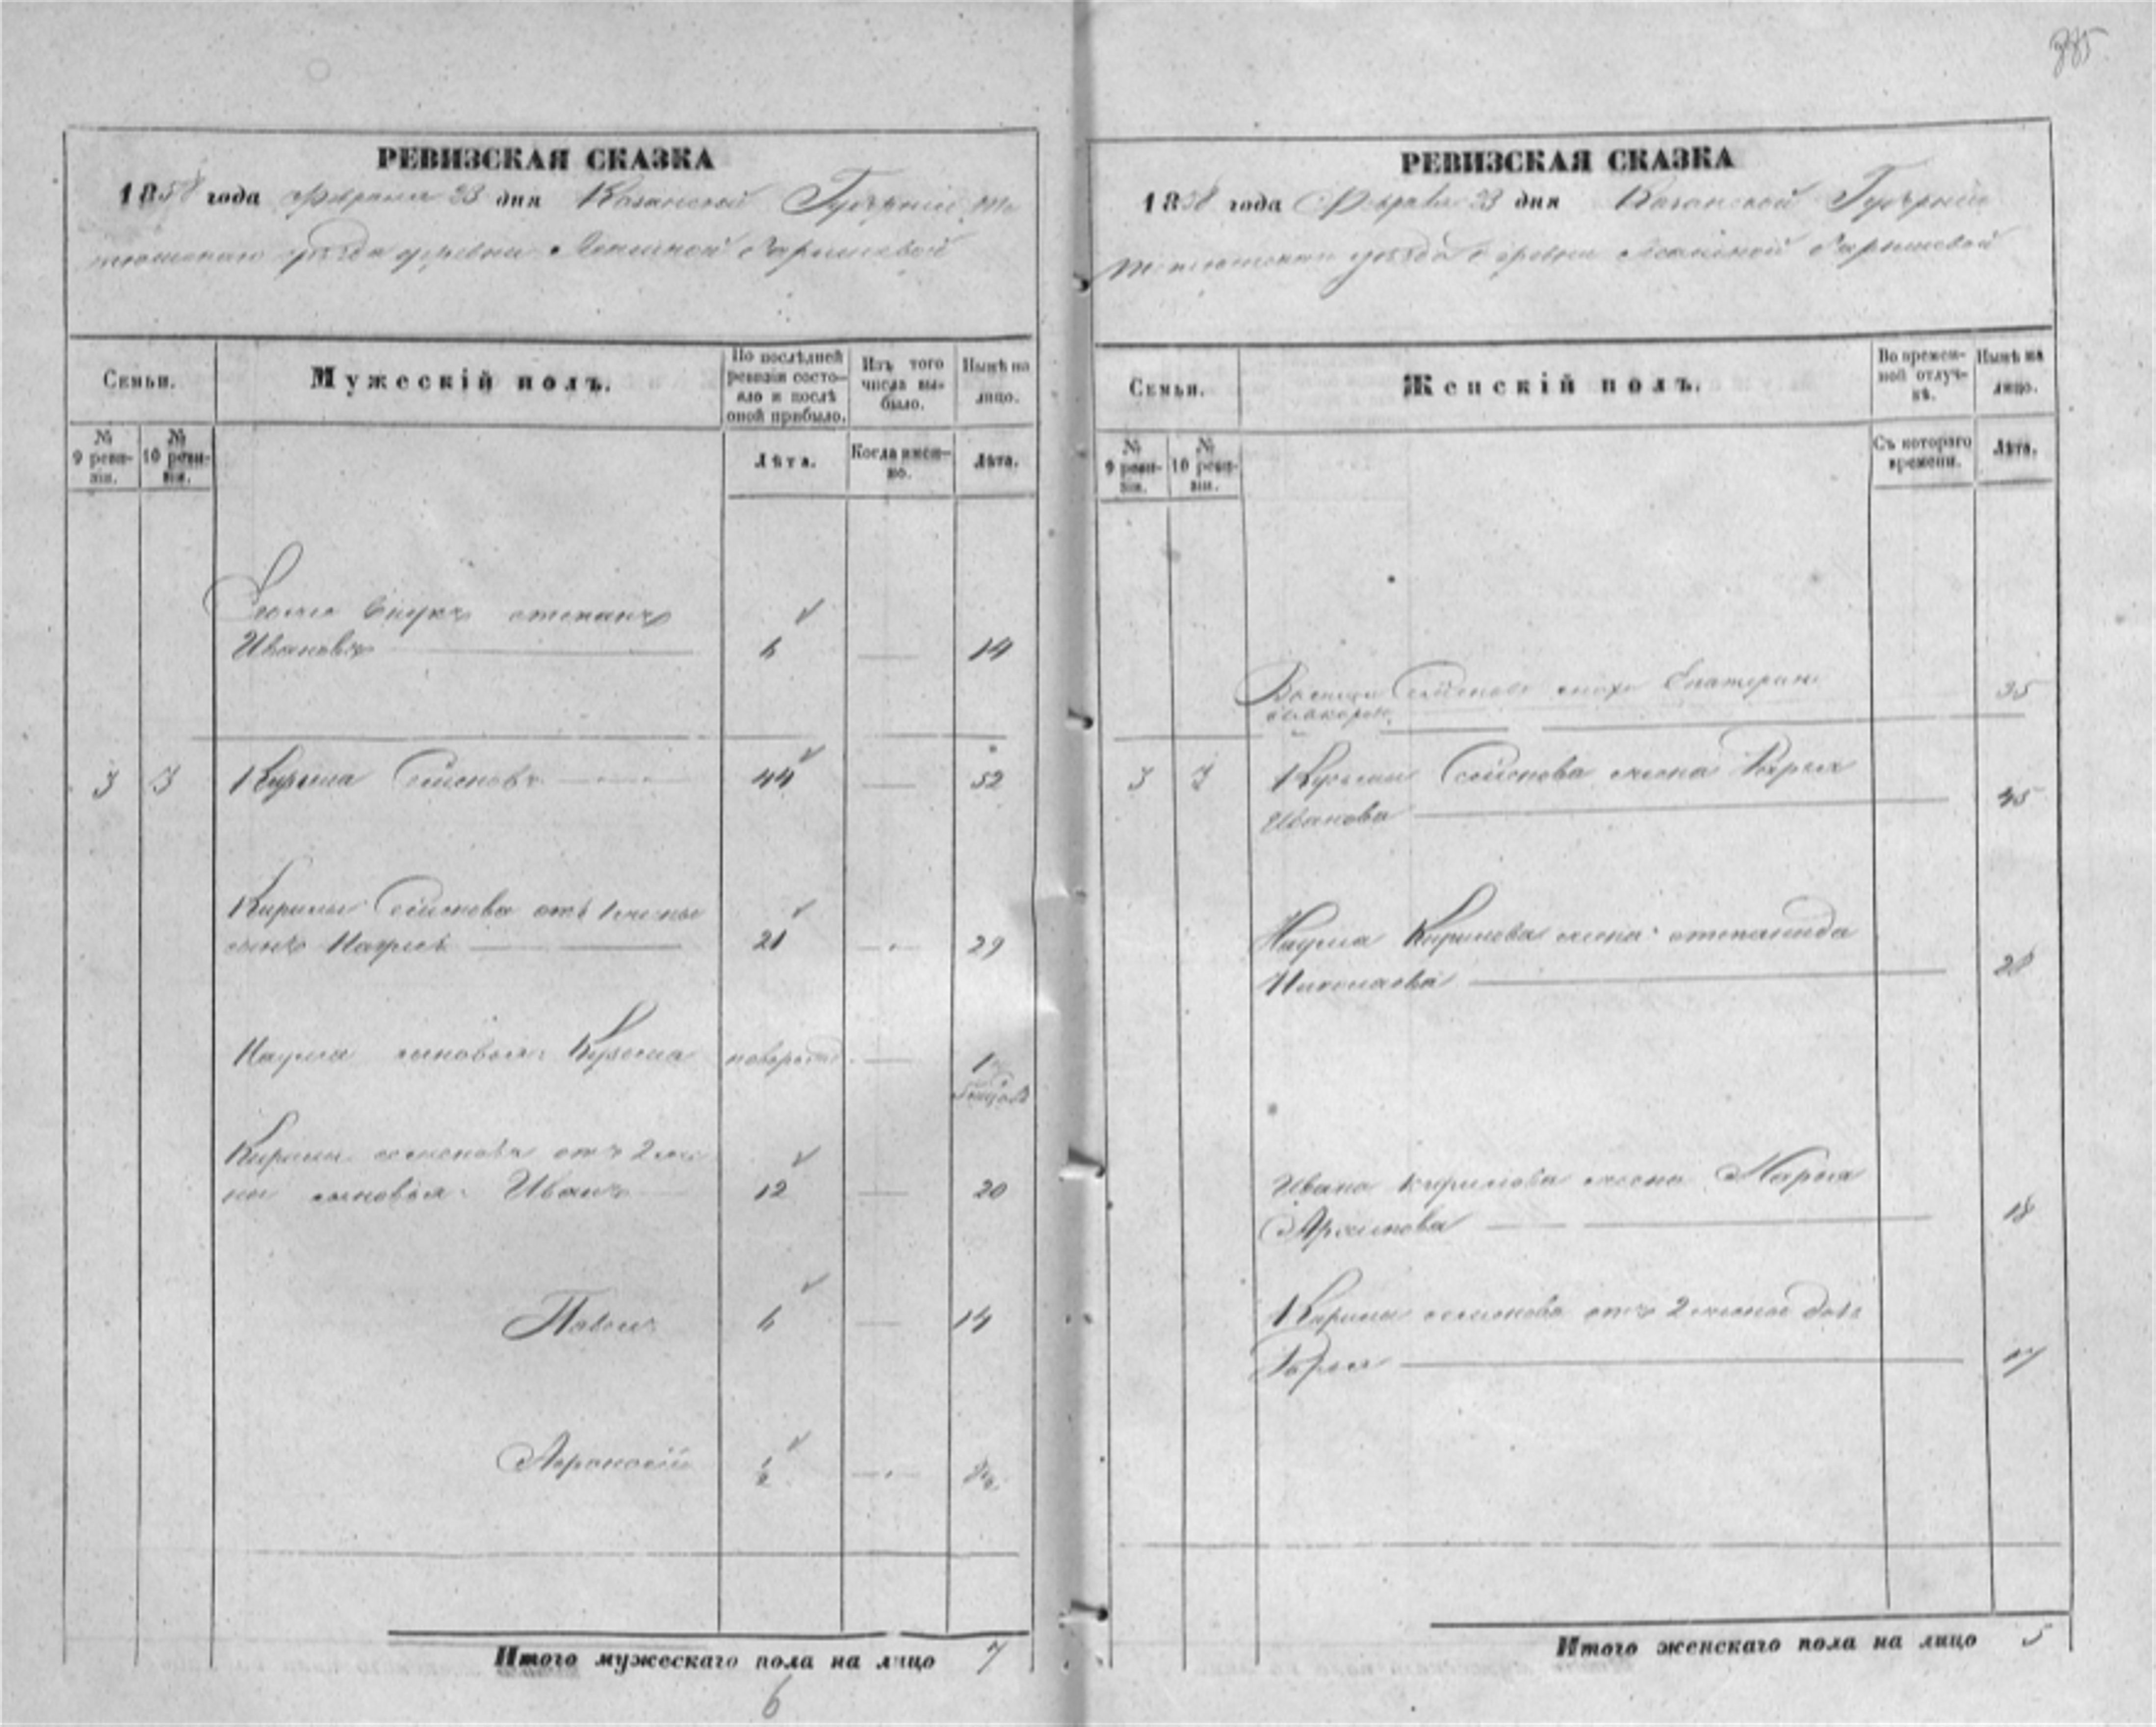 385
РЕВИЗСКАЯ СКАЗКА
1858 года Февраля 23 дня Казанской Губерніи Те
тюшскаго уѣзда деревни
Семьи.
Мужескій полъ.
По послѣдней ревизіи состояло и послѣ оной прибыло.
Изъ того числа выбыло.
Нынѣ на лицо.
№ 9 ревизіи.
№ 10 ревизіи.
Лѣта.
Когда именно.
Лѣта.
внукъ степанъ
Ивановъ 6 14
3 3 Кирила Семеновъ 44 52
Кирилы Семенова отъ 1 жены
сынъ Наумъ 21 29
Наума сыновья: Кузьма 1
Кирилы семенова отъ 2 же
ны сыновья: Иванъ 12 20
Павелъ 6 14
Афонасій 1/2 8 1/2
Итого мужескаго пола на лицо 7
6
РЕВИЗСКАЯ СКАЗКА
1858 года Февраля 23 дня Казанской Губерніи
Тетюшскаго уѣзда деревни
Семьи.
Женскій полъ.
Во временной отлучкѣ.
Нынѣ на лицо.
№ 9 ревизіи.
№ 10 ревизіи.
Съ котораго времени.
Лѣта.
Семенова сноха Екатерина
35
3 3 Кирилы Семенова жена Дарья
Иванова 45
Наума Кирилова жена степанида
Николаева 28
Ивана Кирилова жена Марья
Архипова 18
Кирилы семенова отъ 2 жены дочь
Дарья 17
Итого женскаго пола на лицо 5